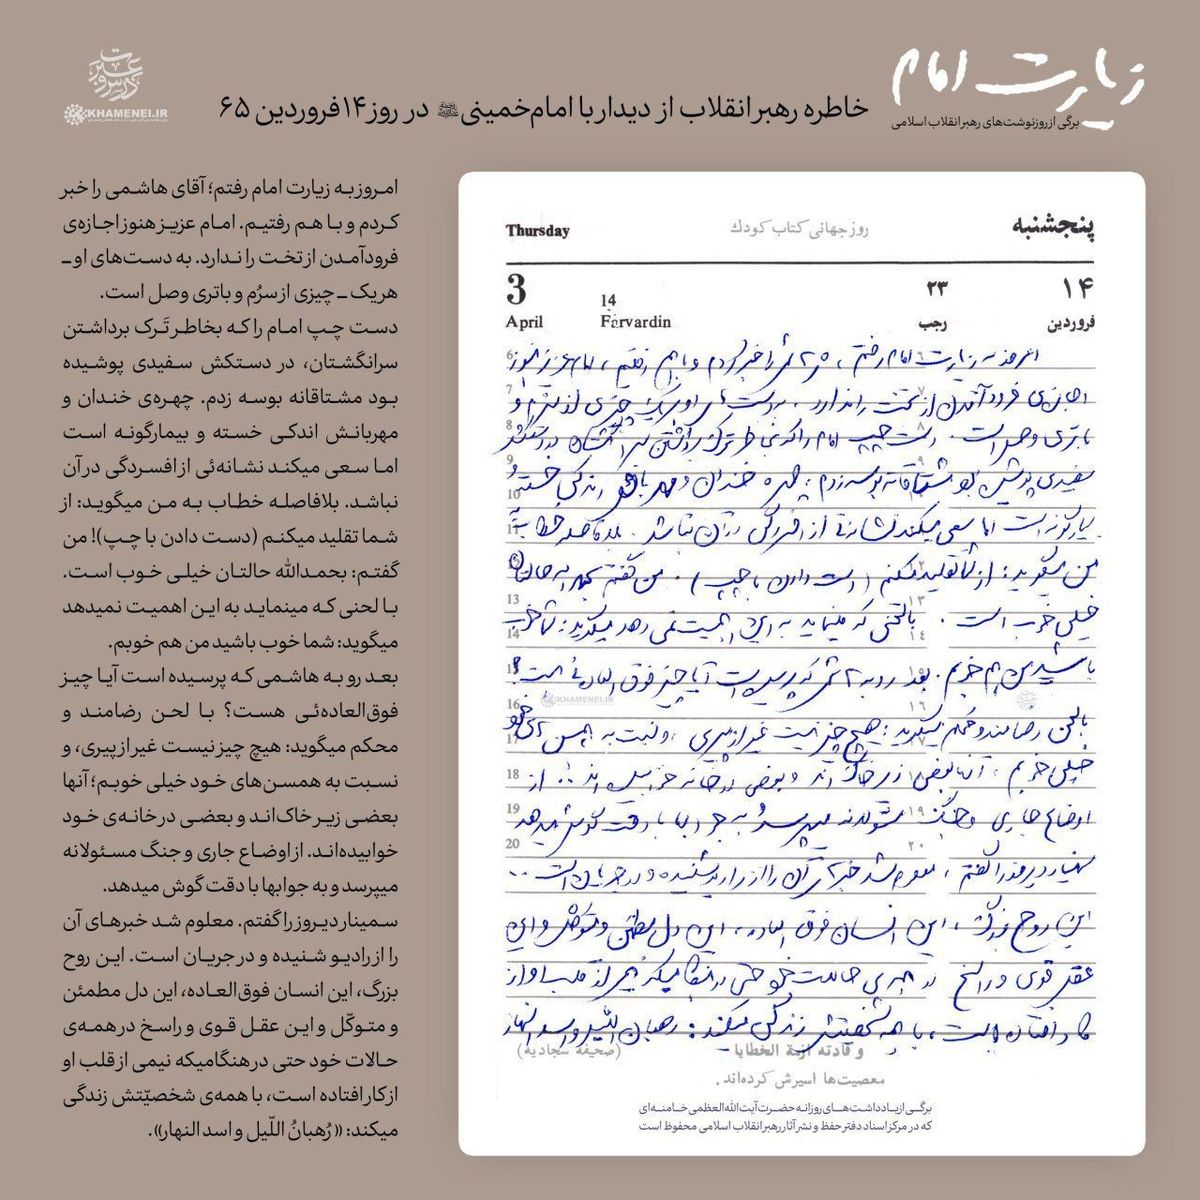 زیارت امام
برگی از روزنوشت‌های رهبر انقلاب اسلامی
خاطره رهبر انقلاب از دیدار با امام‌خمینی در روز ۱۴ فروردین ۶۵
درس و عبرت
KHAMENEI.IR
امروز به زیارت امام رفتم؛ آقای هاشمی را خبر
کردم و با هم رفتیم. امام عزیز هنوز اجازه‌ی
فرودآمدن از تخت را ندارد. به دست‌های او ـ
هریک ـ چیزی از سرُم و باتری وصل است.
دست چپ امام را که بخاطر تَرک برداشتن
سرانگشتان، در دستکش سفیدی پوشیده
بود مشتاقانه بوسه زدم. چهره‌ی خندان و
مهربانش اندکی خسته و بیمارگونه است
اما سعی میکند نشانه‌ئی از افسردگی در آن
نباشد. بلافاصله خطاب به من میگوید: از
شما تقلید میکنم (دست دادن با چپ)! من
گفتم: بحمدالله حالتان خیلی خوب است.
با لحنی که مینماید به این اهمیت نمیدهد
میگوید: شما خوب باشید من هم خوبم.
بعد رو به هاشمی که پرسیده است آیا چیز
فوق‌العاده‌ئی هست؟ با لحن رضامند و
محکم میگوید: هیچ چیز نیست غیر از پیری، و
نسبت به همسن‌های خود خیلی خوبم؛ آنها
بعضی زیر خاک‌اند و بعضی در خانه‌ی خود
خوابیده‌اند. از اوضاع جاری و جنگ مسئولانه
میپرسد و به جوابها با دقت گوش میدهد.
سمینار دیروز را گفتم. معلوم شد خبرهای آن
را از رادیو شنیده و در جریان است. این روح
بزرگ، این انسان فوق‌العاده، این دل مطمئن
و متوکّل و این عقل قوی و راسخ در همه‌ی
حالات خود حتی در هنگامیکه نیمی از قلب او
از کار افتاده است، با همه‌ی شخصیّتش زندگی
میکند: «رُهبانُ اللّیل و اسد النهار».
پنجشنبه
روز جهانی کتاب کودك
Thursday
۱۴
۲۳
14
3
فروردین
رجب
Farvardin
April
امروز به زیارت امام رفتم، هاشمی را خبر کردم و با هم رفتیم، امام عزیز هنوز
اجازه‌ی فرود آمدن از تخت را ندارد. به دستهای او هریک چیزی از سرم و
باتری وصل است. دست چپ امام را که بخاطر ترک برداشتن سرانگشتان در دستکش
سفیدی پوشیده بود مشتاقانه بوسه زدم، چهره خندان و مهربانش اندکی خسته و
بیمارگونه است اما سعی میکند نشانه‌ئی از افسردگی در آن نباشد. بلافاصله خطاب به
من میگوید: از شما تقلید میکنم (دست دادن با چپ). من گفتم بحمدالله حالتان
خیلی خوب است. با لحنی که مینماید به این اهمیت نمی‌دهد میگوید: شما خوب
باشید من هم خوبم. بعد رو به هاشمی که پرسیده است آیا چیز فوق العاده‌ئی هست؟
با لحن رضامند و محکم میگوید: هیچ چیز نیست غیر از پیری، و نسبت به همسن‌های خود
خیلی خوبم، آنها بعضی زیر خاک‌اند و بعضی در خانه خوابیده‌اند.. از
اوضاع جاری و جنگ مسئولانه میپرسد و به جوابها با دقت گوش میدهد
سمینار دیروز را گفتم، معلوم شد خبرهای آن را از رادیو شنیده و در جریان است..
این روح بزرگ، این انسان فوق العاده، این دل مطمئن و متوکل و این
عقل قوی و راسخ در همه‌ی حالات خود حتی در هنگامیکه نیمی از قلب او از
کار افتاده است، با همه شخصیتش زندگی میکند: رهبان اللیل و اسد النهار
و قادته ازمة الخطایا
(صحیفه سجادیه)
معصیت‌ها اسیرش کرده‌اند.
برگی از یادداشت‌های روزانه حضرت آیت‌الله‌العظمی خامنه‌ای
که در مرکز اسناد دفتر حفظ و نشر آثار رهبر انقلاب اسلامی محفوظ است